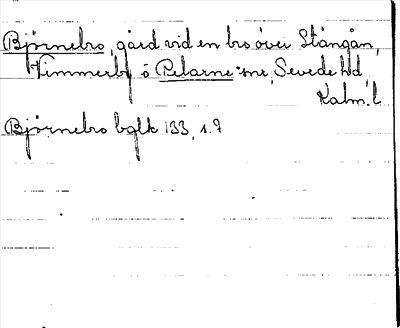 Bjørnebro, gård vid en bro över Stångån,
Vimmerby o Pelarne snr, Sevede hd
Kalm. l
Bjørnebro bglk 133, s. 7